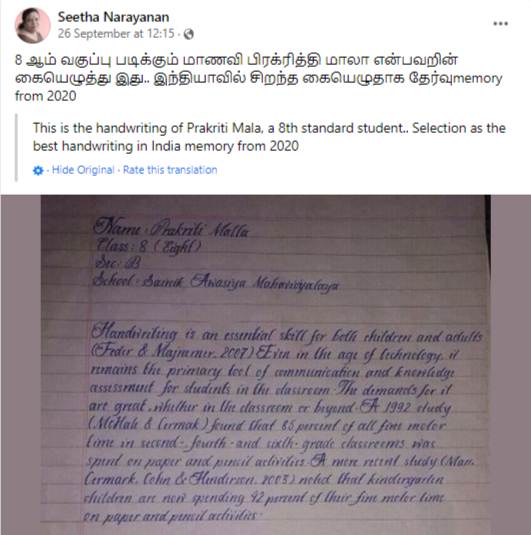 Seetha Narayanan
26 September at 12:15 ·
8 ஆம் வகுப்பு படிக்கும் மாணவி பிரக்ரித்தி மாலா என்பவறின்
கையெழுத்து இது.. இந்தியாவில் சிறந்த கையெழுதாக தேர்வுmemory
from 2020
This is the handwriting of Prakriti Mala, a 8th standard student.. Selection as the
best handwriting in India memory from 2020
· Hide Original · Rate this translation
Name: Prakriti Malla
Class: 8 (Eight)
Sec: B
School: Sainik Awasiya Mahavidyalaya
Handwriting is an essential skill for both children and adults
(Feder & Majnemer, 2007) Even in the age of technology, it
remains the primary tool of communication and knowledge
assessment for students in the classroom. The demands for it
are great, whether in the classroom or beyond. A 1992 study
(McHale & Cermak) found that 85 percent of all fine motor
time in second- fourth- and sixth- grade classrooms was
spent on paper and pencil activities. A more recent study (Marr,
Cermark, Cohn & Henderson, 2003) noted that kindergarten
children are now spending 42 percent of their fine motor time
on paper and pencil activities.